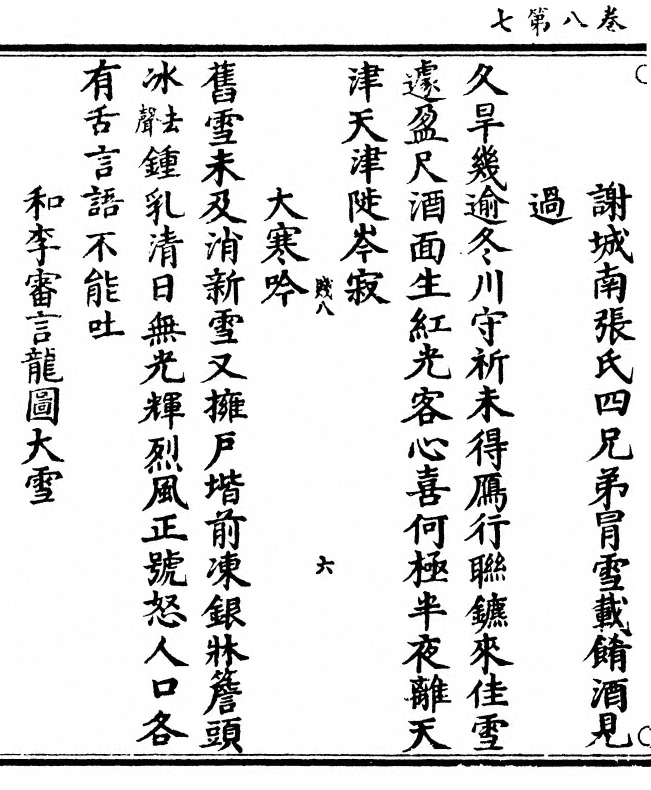 卷八第七
謝城南張氏四兄弟冐雪載餚酒見
過
久旱幾逾冬川守祈未得鴈行聯鑣來佳雪
遽盈尺酒面生紅光客心喜何極半夜離天
津天津陡岑寂
賤八
六
大寒吟
舊雪未及消新雪又擁戶堦前凍銀牀簷頭
冰去聲鍾乳清日無光輝烈風正號怒人口各
有舌言語不能吐
和李審言龍圖大雪